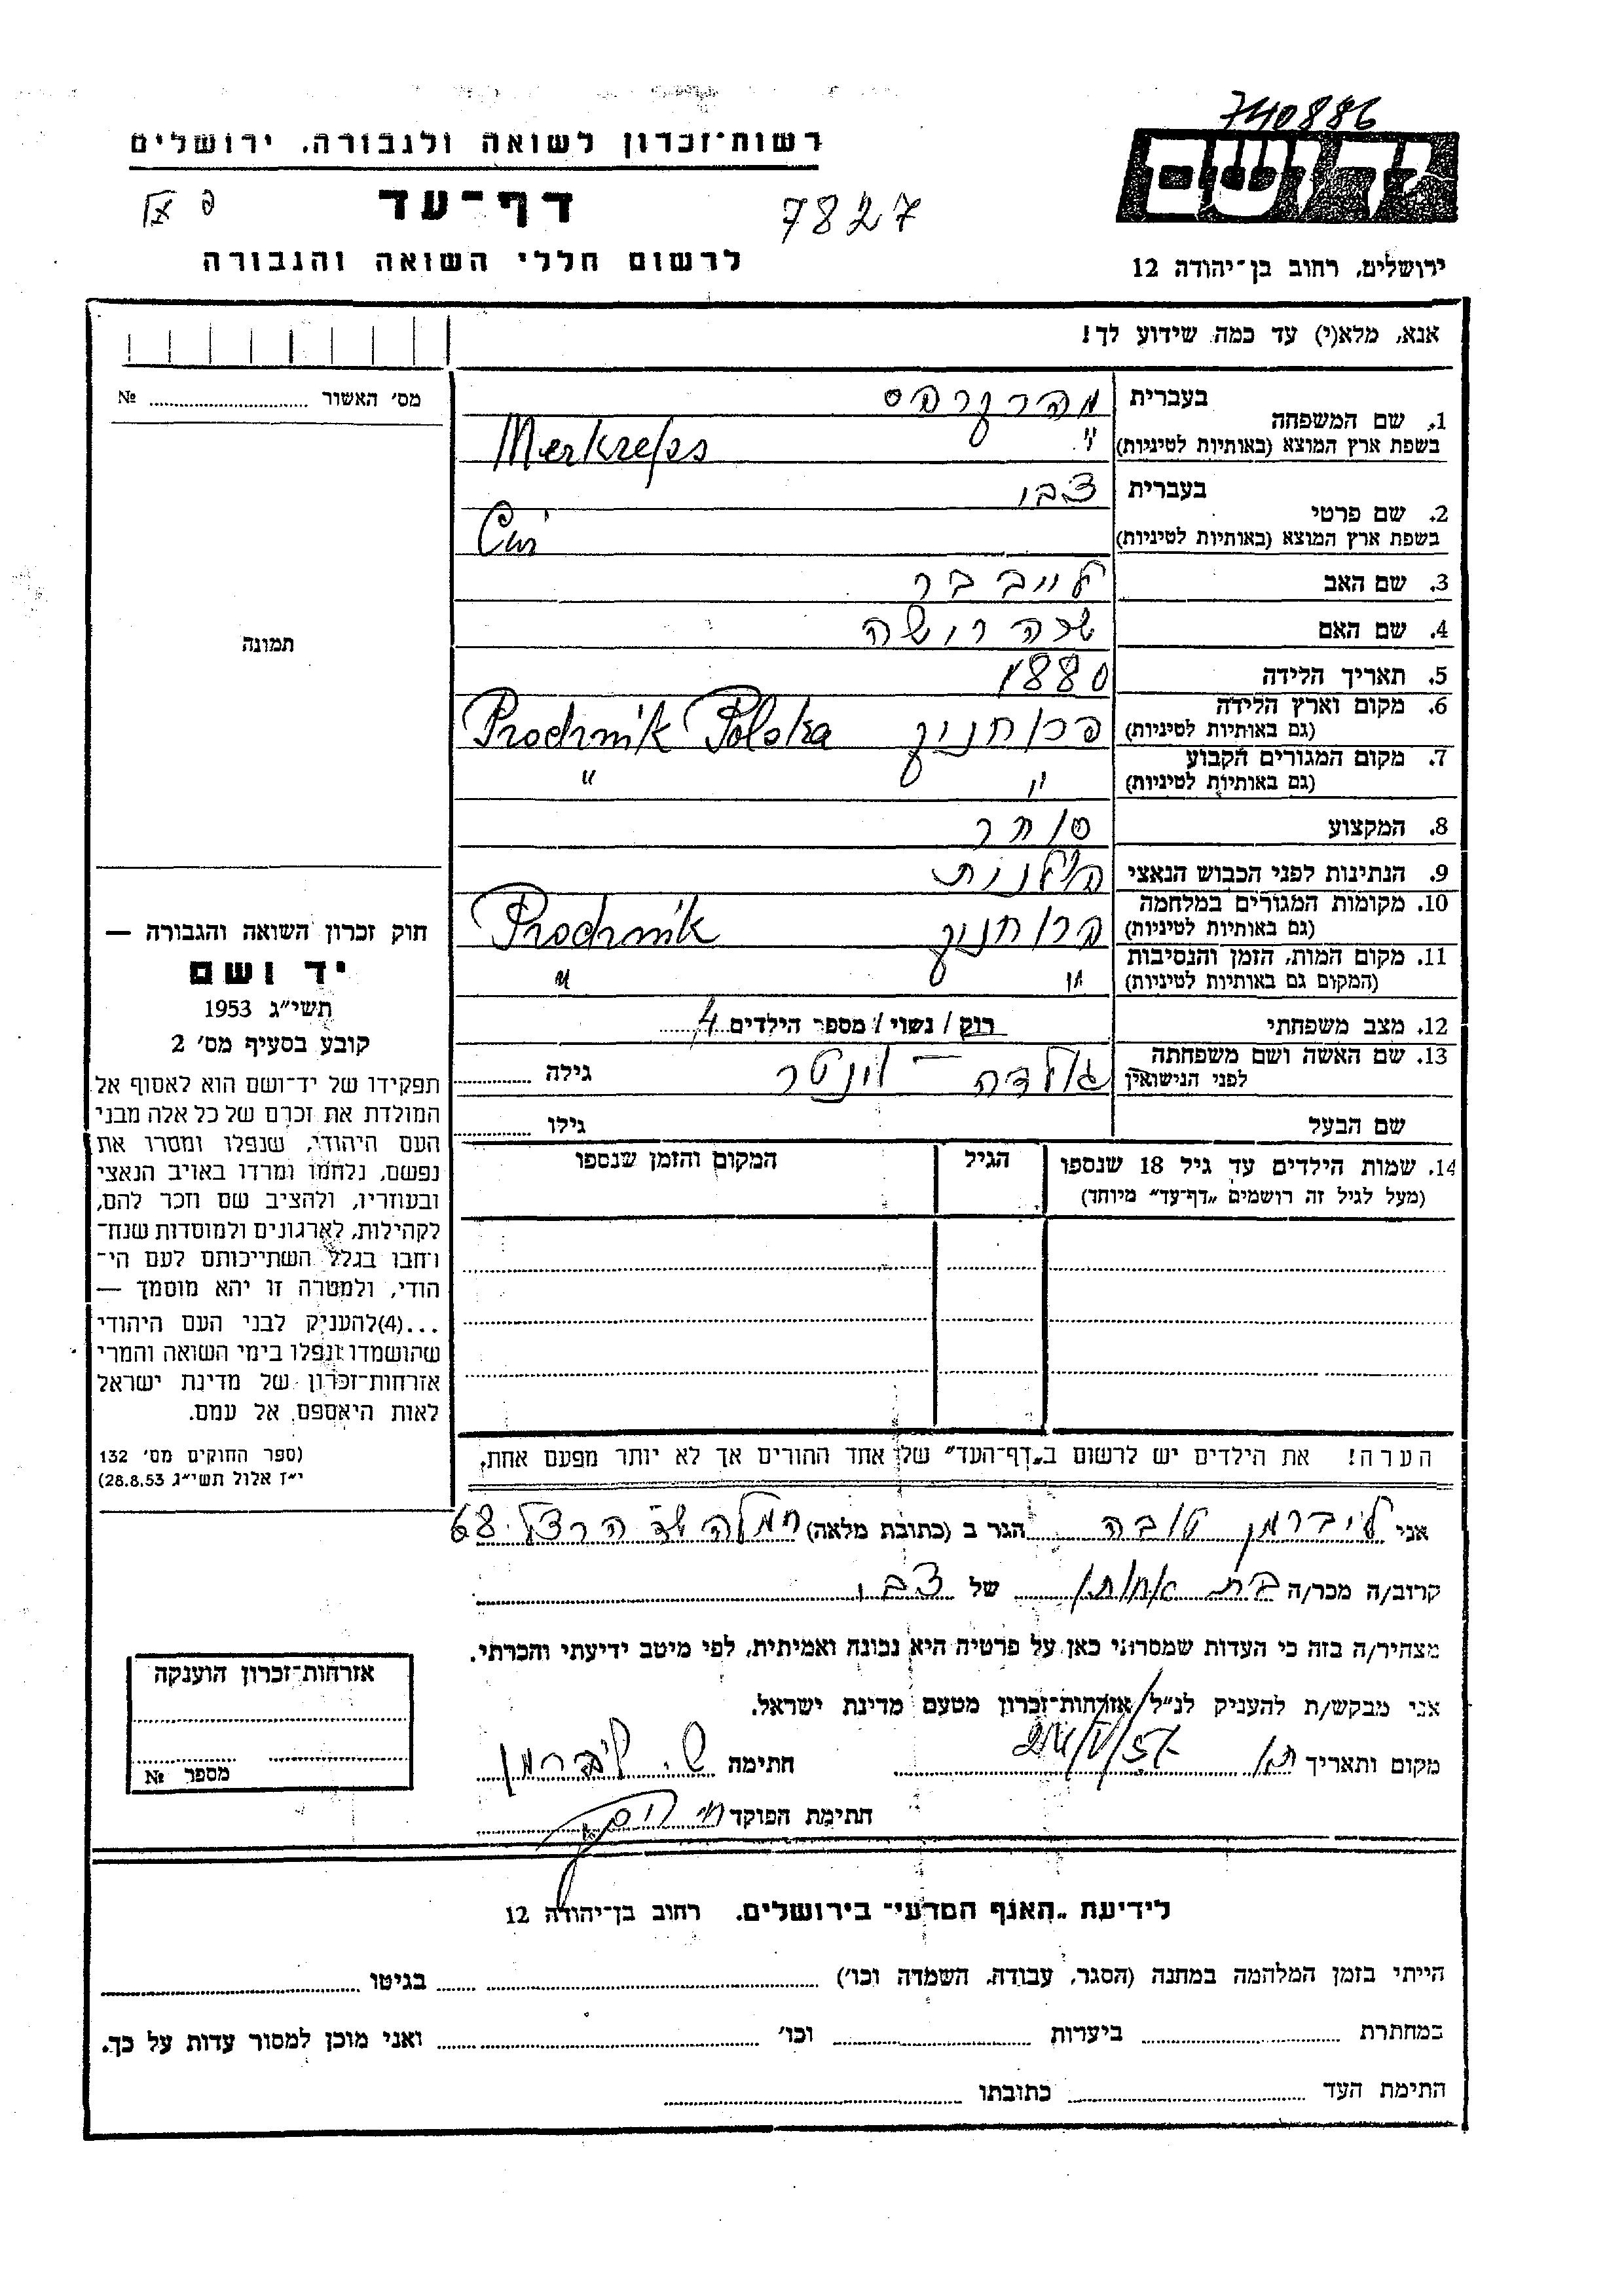 740886
רשות־זכרון לשואה ולגבורה, ירושלים
דף־עד
7827
לרשום חללי השואה והגבורה
ירושלים, רחוב בן־יהודה 12
אנא, מלא(י) עד כמה שידוע לך!
מס׳ האשור № 
1. שם המשפחה
בעברית
בשפת ארץ המוצא (באותיות לטיניות)
Merkrebs
2. שם פרטי
בעברית צבי
בשפת ארץ המוצא (באותיות לטיניות)
Cwi
3. שם האב לייב בר
4. שם האם שרה רושה
5. תאריך הלידה 1880
6. מקום וארץ הלידה
(גם באותיות לטיניות)
פרוחניק Prochnik Polska
7. מקום המגורים הקבוע
(גם באותיות לטיניות)
" "
8. המקצוע סוחר
9. הנתינות לפני הכבוש הנאצי פולנית
10. מקומות המגורים במלחמה
(גם באותיות לטיניות)
פרוחניק Prochnik
11. מקום המות, הזמן והנסיבות
(המקום גם באותיות לטיניות)
" "
12. מצב משפחתי רוק / נשוי / מספר הילדים 4
13. שם האשה ושם משפחתה
לפני הנישואין
גולדה – וינטר גילה
שם הבעל גילו
14. שמות הילדים עד גיל 18 שנספו
(מעל לגיל זה רושמים „דף־עד" מיוחד)
הגיל
המקום והזמן שנספו
תמונה
חוק זכרון השואה והגבורה —
יד ושם
תשי״ג 1953
קובע בסעיף מס׳ 2
תפקידו של יד־ושם הוא לאסוף אל
המולדת את זכרם של כל אלה מבני
העם היהודי, שנפלו ומסרו את
נפשם, נלחמו ומרדו באויב הנאצי
ובעוזריו, ולהציב שם וזכר להם,
לקהילות, לארגונים ולמוסדות שנח־
רחבו בגלל השתייכותם לעם הי־
הודי, ולמטרה זו יהא מוסמך —
...(4)להעניק לבני העם היהודי
שהושמדו ונפלו בימי השואה והמרי
אזרחות־זכרון של מדינת ישראל
לאות היאספם אל עמם.
(ספר החוקים מס׳ 132
י״ז אלול תשי״ג 28.8.53)
הערה! את הילדים יש לרשום ב„דף־העד" של אחד ההורים אך לא יותר מפעם אחת.
אני ליברמן טובה הגר ב (כתובת מלאה) הרצל 68
קרוב/ה מכר/ה בת אחותו של צבי
מצהיר/ה בזה כי העדות שמסרתי כאן על פרטיה היא נכונה ואמיתית, לפי מיטב ידיעתי והכרתי.
אני מבקש/ת להעניק לנ״ל אזרחות־זכרון מטעם מדינת ישראל.
מקום ותאריך חתימה ליברמן
חתימת הפוקד
אזרחות־זכרון הוענקה
מספר №
לידיעת „האגף המדעי" בירושלים. רחוב בן־יהודה 12
הייתי בזמן המלחמה במחנה (הסגר, עבודה, השמדה וכו׳) בגיטו
במחתרת ביערות וכו׳ ואני מוכן למסור עדות על כך.
חתימת העד כתובתו